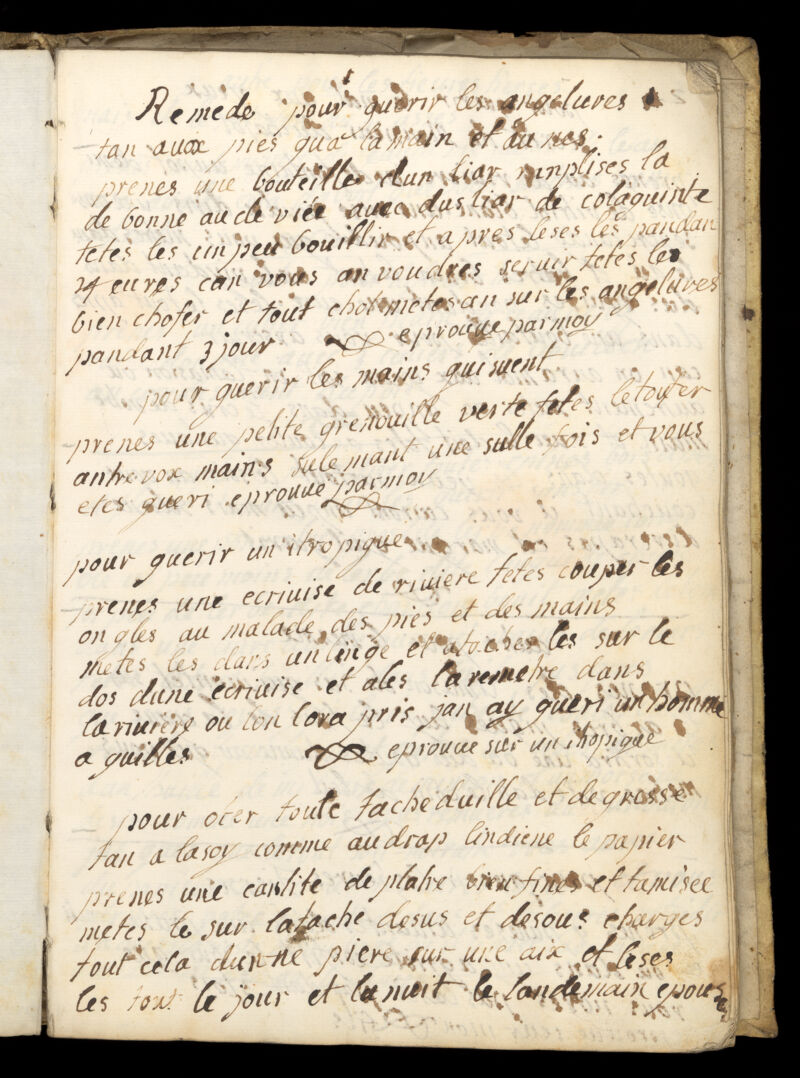 Remede pour guerir les angelures
tan aux pies qua la main et au nes.
prenes une bouteille dun liar renplises la
de bonne au de viée avec dus liar de colaquinte
fetes les un peu bouillir et apres leses les pandan
24 eures can vous an voudres servir fetes les
bien chofer et tout chot metes an sur les angelures
pandant 3 jour eprouve par moy
pour guerir les mains qui suent
prenes une petite grenouille verte fetes le toufer
antre vox mains sulemant une sulle fois et vous
etes gueri eprouve par moy
pour guerir un itropique
prenes une ecrivise de riviere fetes couper les
ongles au malade des pies et des mains
metes les dans un linge et atacher les sur le
dos dune ecrivise et ales la remetre dans
la riviere ou lon lora pris jan ay gueri un homme
a guilles eprouve sur un itropique
pour oter toute tache duille et de gresse
tan a la soy comme au drap lindiene le papier
prenes une cantite de platre bien fines et tamisee
metes le sur la tache desus et desous charges
tout cela dunne piere sur une aix et leses
les tout le jour et la nuit le landemain epous